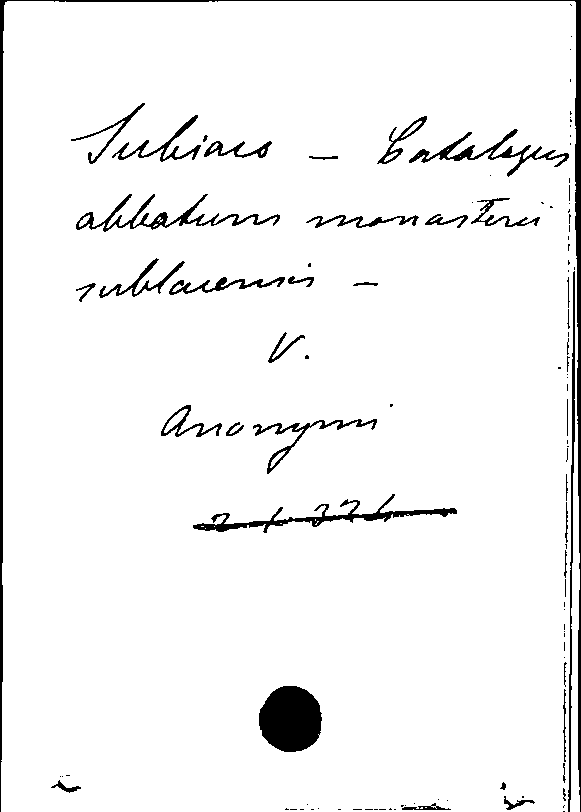 Subiaco – Catalogus
abbatum monasterii
sublacensis –
V.
Anonymi